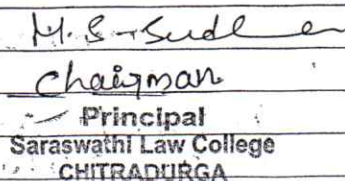 M. S. Sudh
Chairman
Principal
Saraswathi Law College
CHITRADURGA